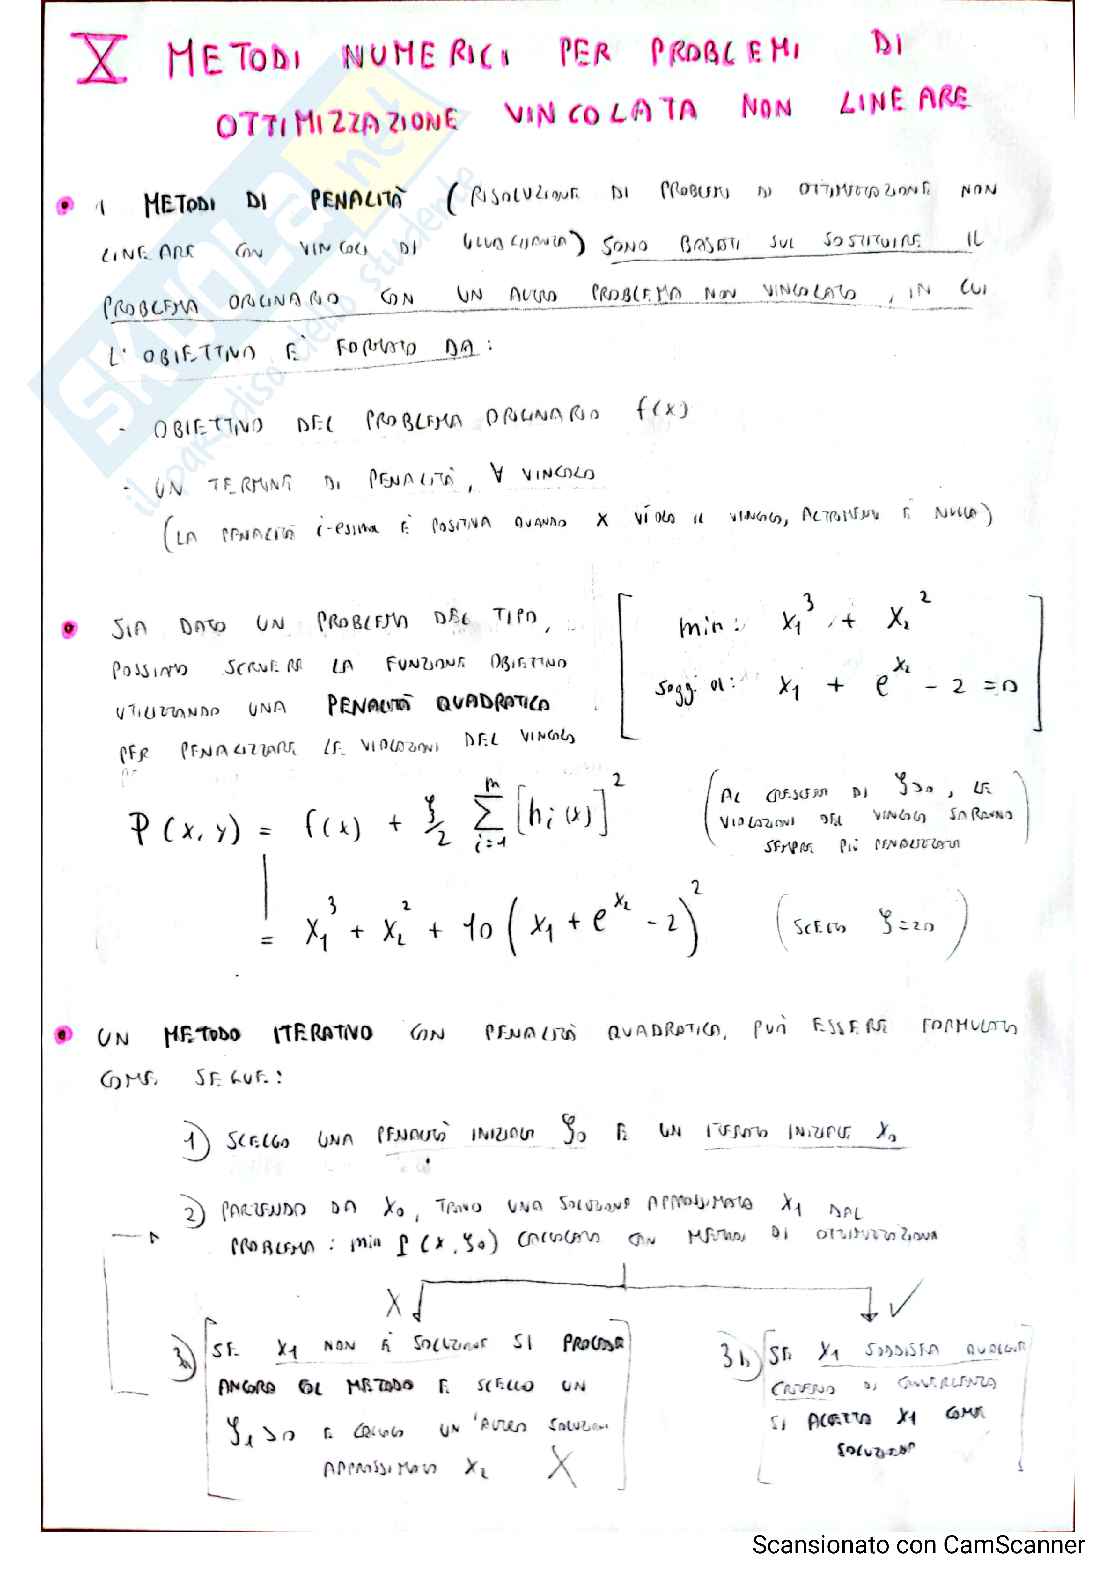 X METODI NUMERICI PER PROBLEMI DI
OTTIMIZZAZIONE VINCOLATA NON LINEARE
1 METODI DI PENALITÀ (RISOLUZIONE DI PROBLEMI DI OTTIMIZZAZIONE NON
LINEARE CON VINCOLI DI UGUAGLIANZA) SONO BASATI SUL SOSTITUIRE IL
PROBLEMA ORIGINARIO CON UN ALTRO PROBLEMA NON VINCOLATO, IN CUI
L'OBIETTIVO È FORMATO DA:
- OBIETTIVO DEL PROBLEMA ORIGINARIO f(x)
- UN TERMINE DI PENALITÀ, ∀ VINCOLO
(LA PENALITÀ i-esima È POSITIVA QUANDO X VIOLA IL VINCOLO, ALTRIMENTI È NULLA)
SIA DATO UN PROBLEMA DEL TIPO,
POSSIAMO SCRIVERE LA FUNZIONE OBIETTIVO
UTILIZZANDO UNA PENALITÀ QUADRATICA
PER PENALIZZARE LE VIOLAZIONI DEL VINCOLO
min: x₁³ + x₂²
sogg. a: x₁ + e^x₂ - 2 = 0
P(x, y) = f(x) + ξ/2 Σ_{i=1}^{m} [h_i(x)]²
(AL CRESCERE DI ξ>0, LE
VIOLAZIONI DEL VINCOLO SARANNO
SEMPRE PIÙ PENALIZZATE)
= x₁³ + x₂² + 10 (x₁ + e^x₂ - 2)² (SCELGO ξ=20)
UN METODO ITERATIVO CON PENALITÀ QUADRATICA, PUÒ ESSERE FORMULATO
COME SEGUE:
1) SCELGO UNA PENALITÀ INIZIALE ξ₀ E UN ITERATO INIZIALE X₀
2) PARTENDO DA X₀, TROVO UNA SOLUZIONE APPROSSIMATA X₁ DAL
PROBLEMA: min P(x, ξ₀) CALCOLATO CON METODI DI OTTIMIZZAZIONE
X ✓
3a) SE X₁ NON È SOLUZIONE SI PROCEDE
ANCORA COL METODO E SCELGO UN
ξ₁>0 E CALCOLO UN'ALTRA SOLUZIONE
APPROSSIMATA X₂ X
3b) SE X₁ SODDISFA QUALCHE
CRITERIO DI CONVERGENZA
SI ACCETTA X₁ COME
SOLUZIONE
SKUOLA.net
il paradiso dello studente
Scansionato con CamScanner